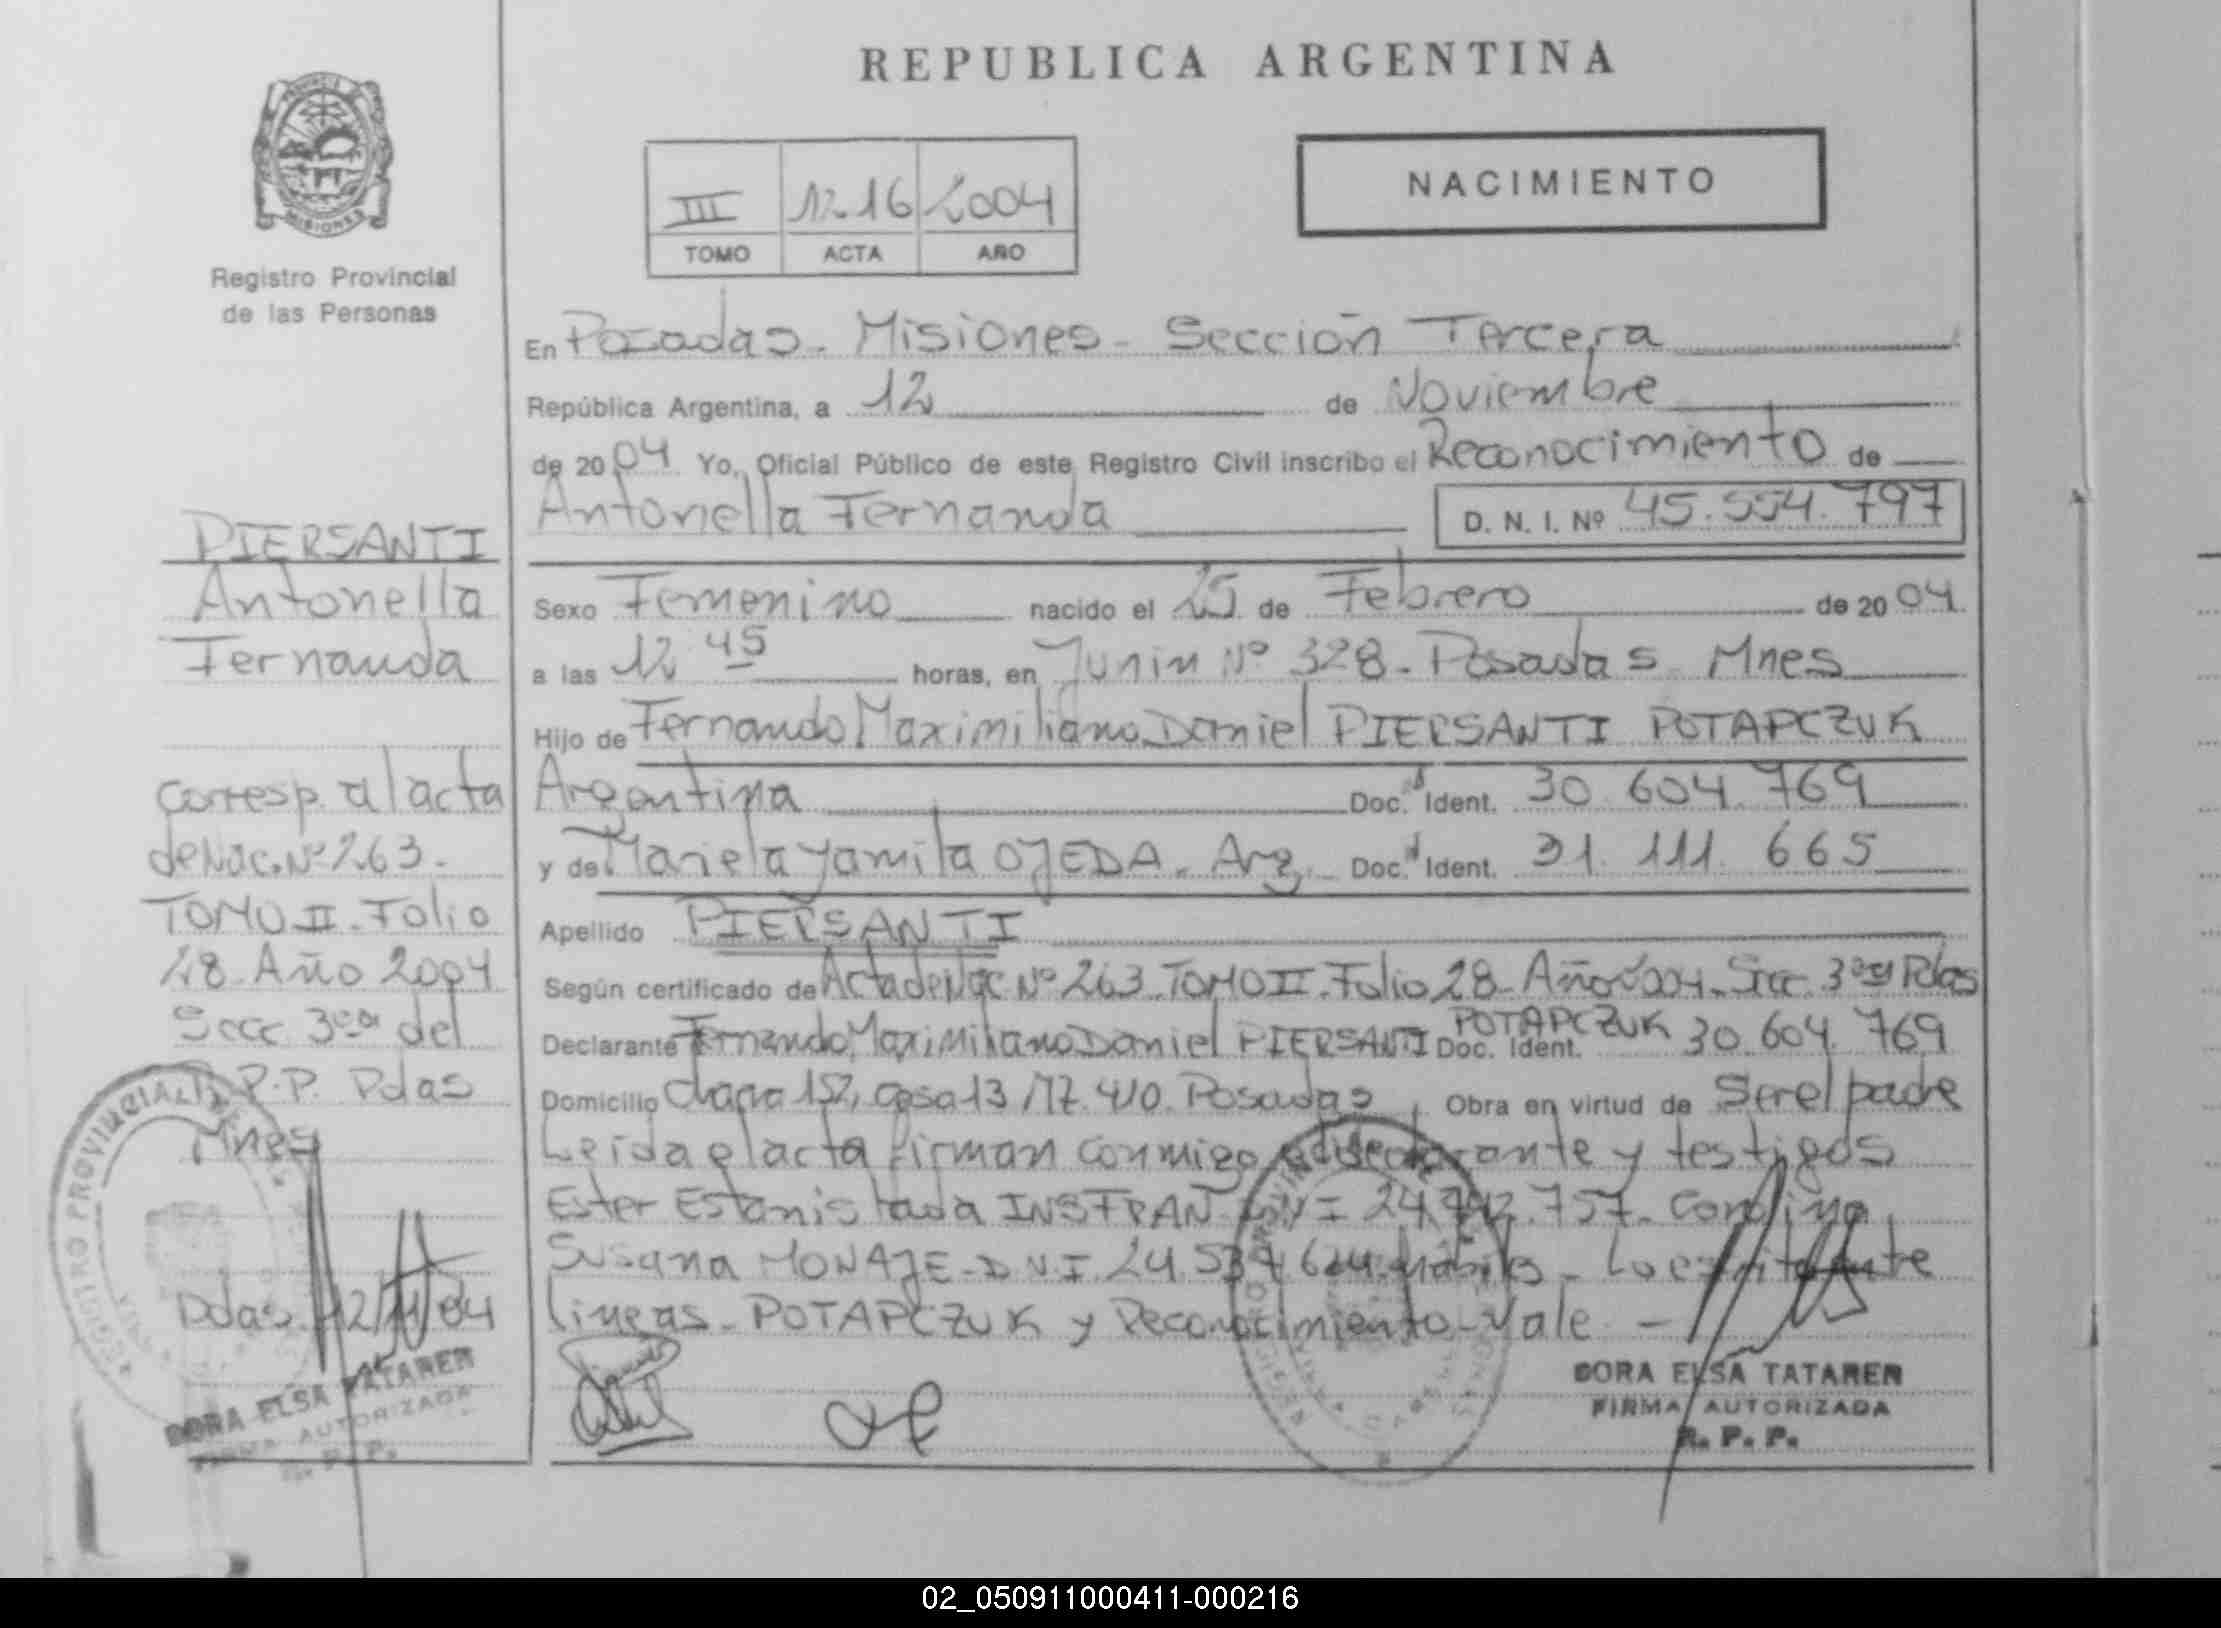 REPUBLICA ARGENTINA
NACIMIENTO
III 1216 2004
TOMO ACTA AÑO
MISIONES
Registro Provincial
de las Personas
En Posadas - Misiones - Sección Tercera
República Argentina, a 12 de Noviembre
de 2004 Yo, Oficial Público de este Registro Civil inscribo el Reconocimiento de
Antonella Fernanda D. N. I. Nº 45.554.797
Sexo Femenino nacido el 25 de Febrero de 2004
a las 12 45 horas, en Junin Nº 328 - Posadas Mnes
Hijo de Fernando Maximiliano Daniel PIERSANTI POTAPCZUK
Argentina Doc. Ident. 30.604.769
y de Mariela Yamila OJEDA. Arg. Doc. Ident. 31.111.665
Apellido PIERSANTI
Según certificado de Acta de Nac Nº 263. TOMO II. Folio 28 - Año 2004. Secc. 3era Pdas
Declarante Fernando Maximiliano Daniel PIERSANTI POTAPCZUK Doc. Ident. 30.604.769
Domicilio Chacra 152, Casa 13 Posadas, Obra en virtud de Ser el padre
Leida el acta firman conmigo el declarante y testigos
Ester Estanislada INSFRAN DNI 757. Carolina
Susana MONAJE - DNI 24.534.624. Lo entre
lineas - POTAPCZUK y Reconocimiento - Vale -
DORA ELSA TATAREN
FIRMA AUTORIZADA
R. P. P.
PIERSANTI
Antonella
Fernanda
Corresp. al acta
de Nac. Nº 263.
TOMO II. Folio
28 - Año 2004
Secc 3era del
R.P.P. Pdas
Mnes
Pdas. 12/11/04
DORA ELSA TATAREN
FIRMA AUTORIZADA
R. P. P.
REGISTRO PROVINCIAL DE
02_050911000411-000216